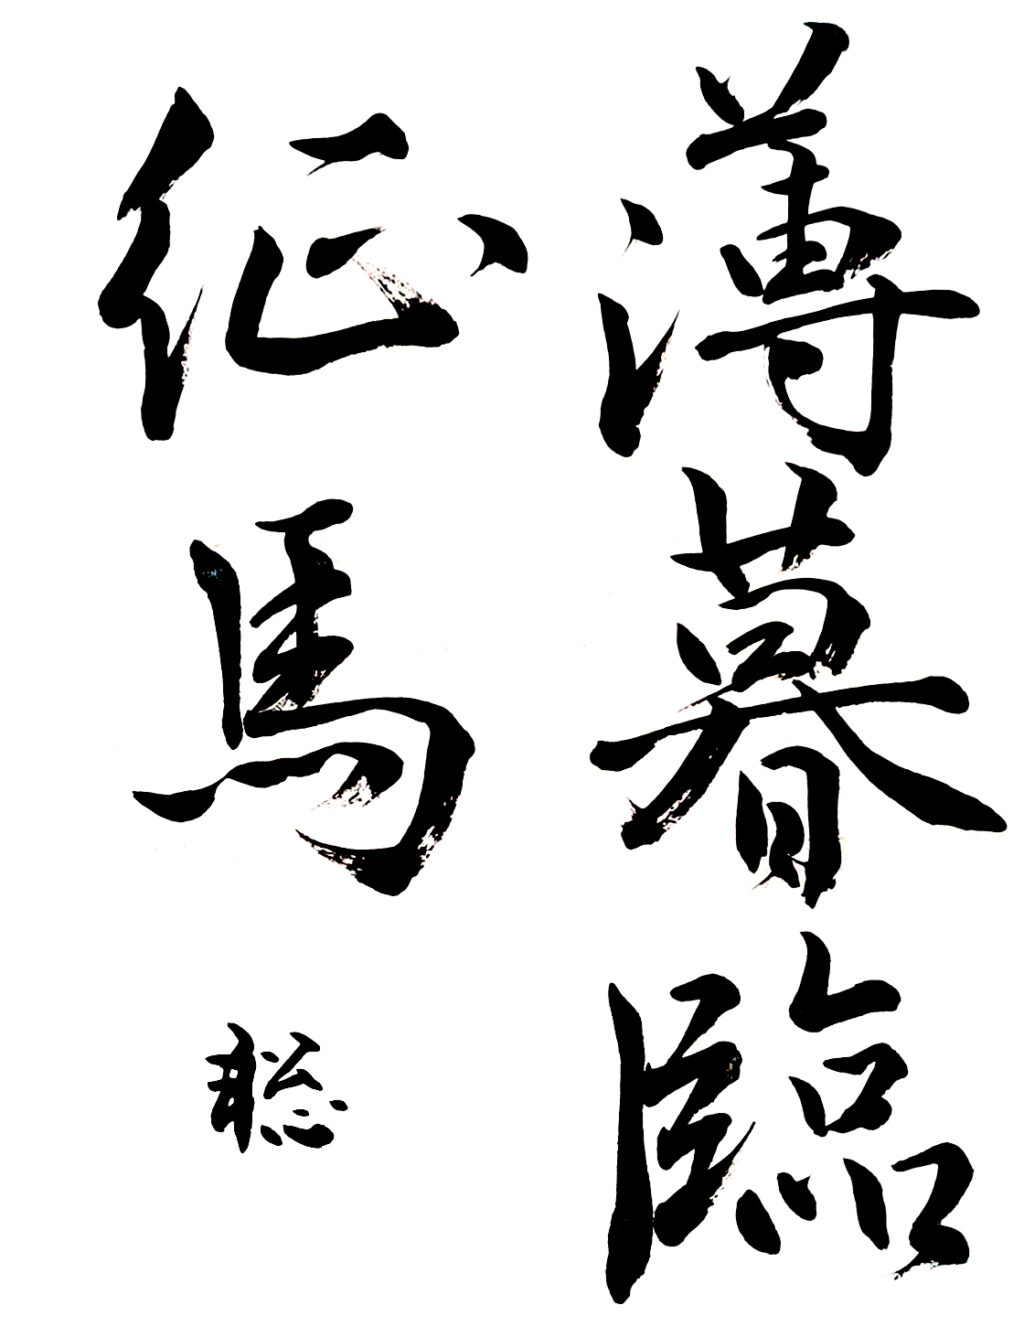 薄暮臨
征馬
聡